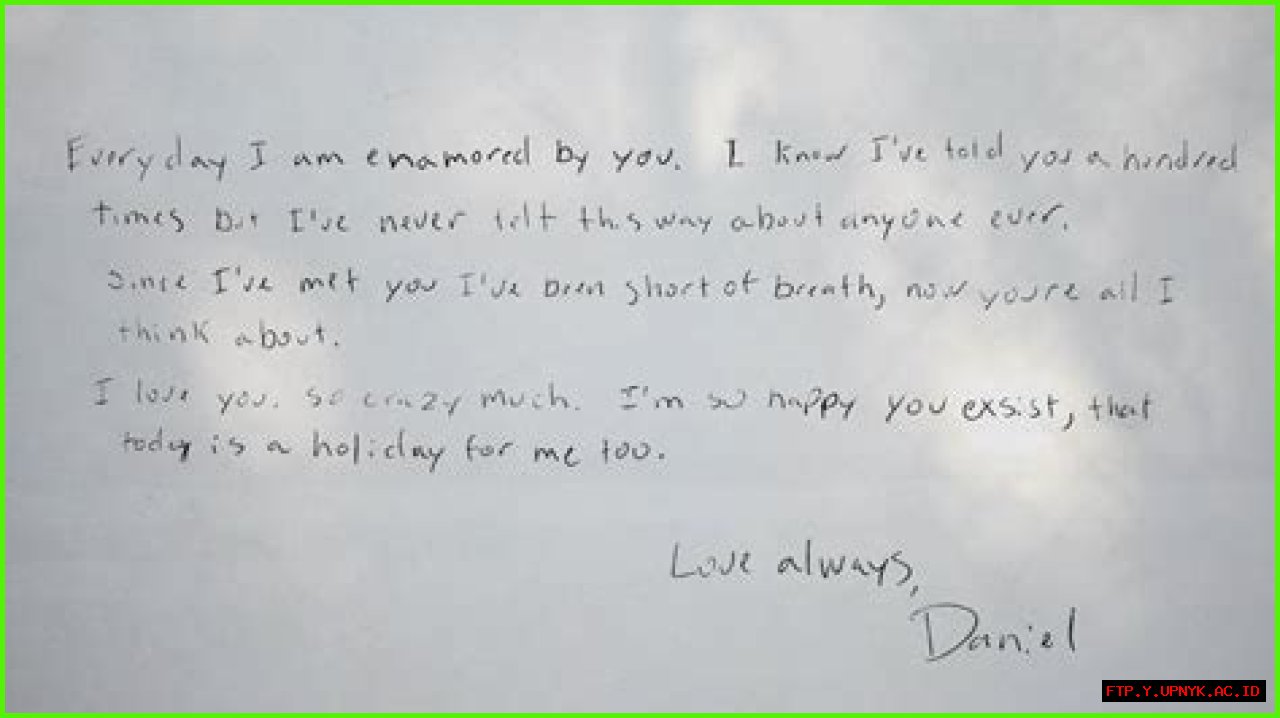 Everyday I am enamored by you. I know I've told you a hundred
times but I've never felt this way about anyone ever.
Since I've met you I've been short of breath, now youre all I
think about.
I love you. so crazy much. I'm so happy you exsist, that
today is a holiday for me too.
Love always,
Daniel
FTP.Y.UPNYK.AC.ID